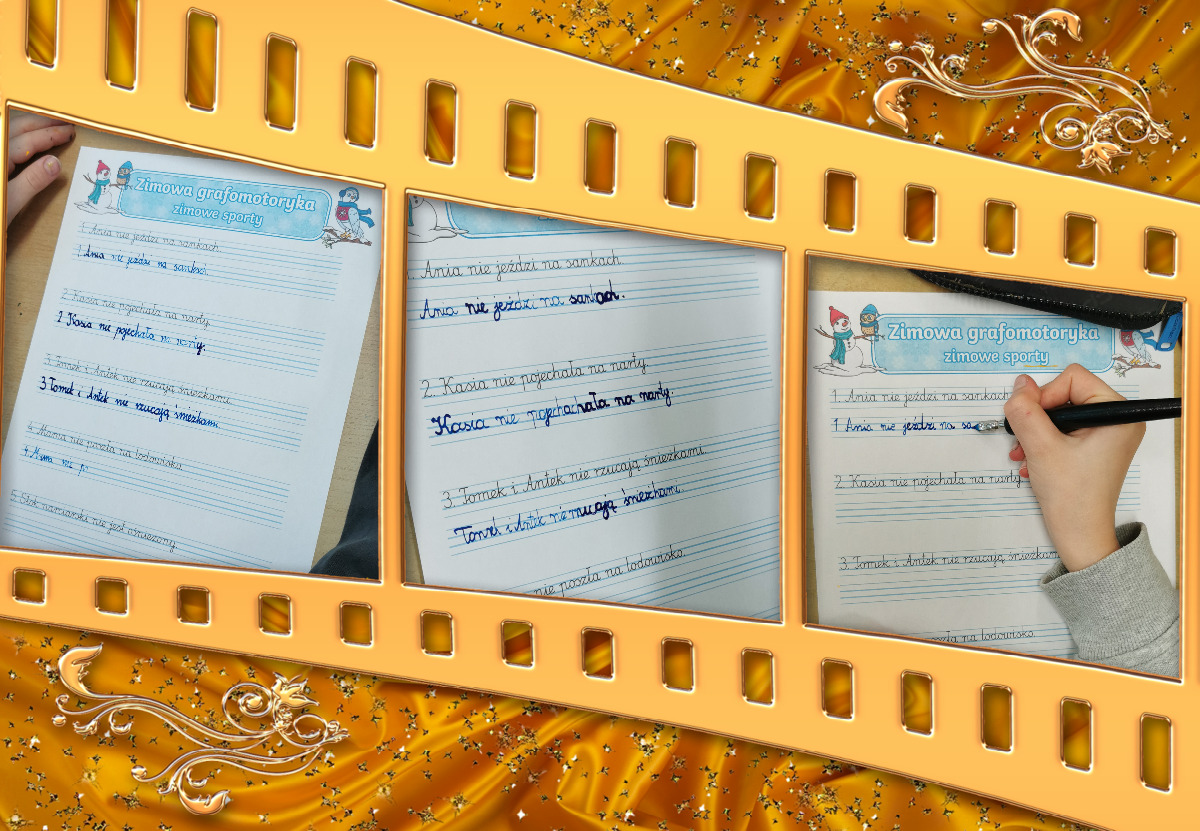 Zimowa grafomotoryka
zimowe sporty
1. Ania nie jeździ na sankach.
1 Ania nie jeździ na sankach.
2. Kasia nie pojechała na narty.
2 Kasia nie pojechała na narty.
3. Tomek i Antek nie rzucają śnieżkami.
3 Tomek i Antek nie rzucają śnieżkami.
4. Mama nie poszła na lodowisko.
4. Mama nie po
5. Stok narciarski nie jest ośnieżony.
. Ania nie jeździ na sankach.
Ania nie jeździ na sankach.
2. Kasia nie pojechała na narty.
Kasia nie pojechała na narty.
3. Tomek i Antek nie rzucają śnieżkami.
Tomek i Antek nie rzucają śnieżkami.
nie poszła na lodowisko.
Zimowa grafomotoryka
zimowe sporty
1. Ania nie jeździ na sankach
1 Ania nie jeździ na sa
2. Kasia nie pojechała na narty
3. Tomek i Antek nie rzucają śnieżkam
poszła na lodowisko.